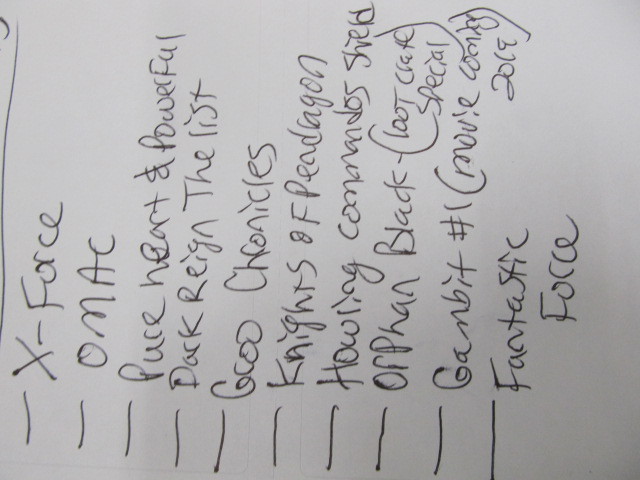 - X-Force
- OMAC
- Pure heart & Powerful
- Dark Reign The list
- Groo Chronicles
- Knights of Pendagon
- Howling commandos shield
- Orphan Black - (loot crate special)
- Gambit #1 (movie coming 2019)
- Fantastic
Force